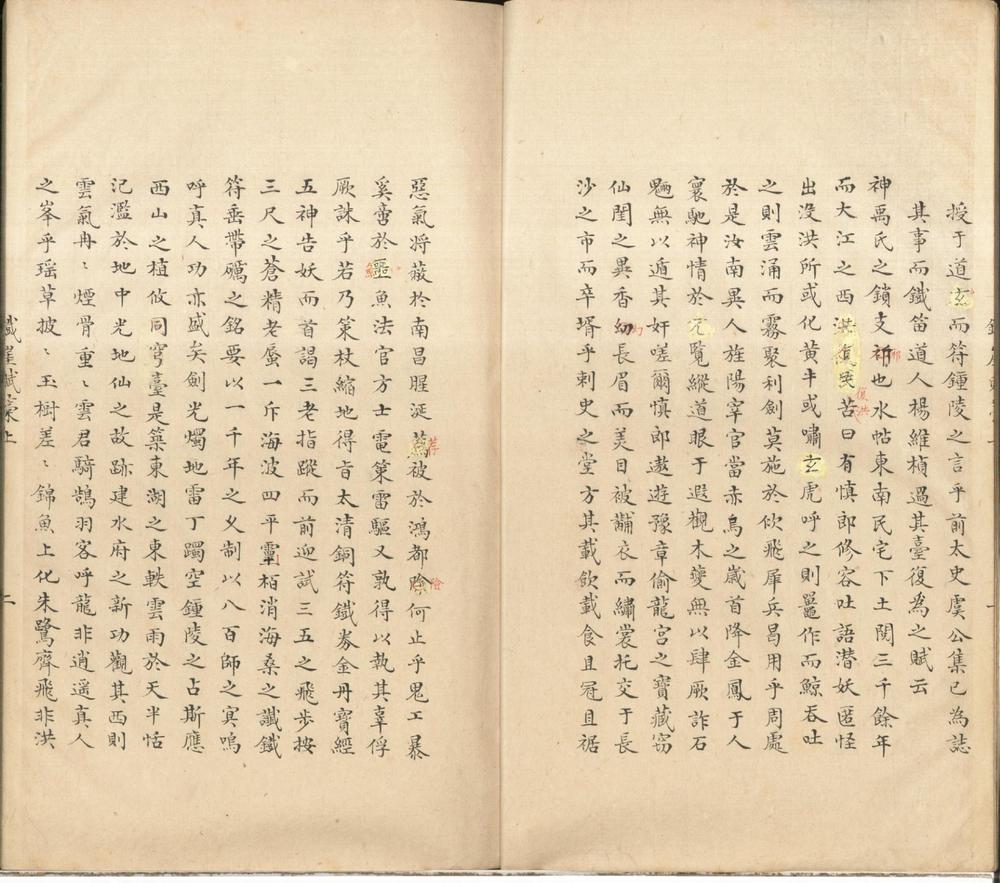 授于道玄而符鍾陵之言乎前太史虞公集已為誌
其事而鐵笛道人楊維楨過其臺復為之賦云
神禹氏之鎖支祁也水帖東南民宅下土閱三千餘年
而大江之西洪苦曰有慎郎修容吐語潜妖匿怪
出没洪所或化黄牛或嘯玄虎呼之則鼉作而鯨吞吐
之則雲涌而霧聚利劍莫施於佽飛犀兵曷用乎周處
於是汝南異人旌陽宰官當赤烏之嵗首降金鳳于人
寰馳神情於元覽縱道眼于遐觀木夔無以肆厥詐石
魎無以遁其奸嗟爾慎郎遨遊豫章偷龍宮之寶藏窃
仙閨之異香幼長眉而美目被黼衣而繡裳托交于長
沙之市而卒壻乎刺史之堂方其載飲載食且冠且裾
惡氣将蔽於南昌腥涎薦被於鴻都何止乎鬼工暴
奚啻於噩魚法官方士電策雷驅又孰得以執其辜俘
厥誅乎若乃策杖縮地得旨太清銅符鐵券金丹寶經
五神告妖而首謁三老指蹤而前迎試三五之飛步按
三尺之蒼精老蜃一斥海波四平栢消海桑之讖鐵
符垂帶礪之銘要以一千年之乆制以八百師之㝠嗚
呼真人功亦盛矣劍光燭地雷丁躅空鍾陵之占斯應
西山之植攸同穹臺是築東湖之東軼雲雨於天半恬
氾濫於地中光地仙之故跡建水府之新功觀其西則
雲氣冉〻煙骨重〻雲君騎鵠羽客呼龍非逍遥真人
之峯乎瑶草披〻玉樹差〻錦魚上化朱鷺齊飛非洪
鐵崖賦稾上
二